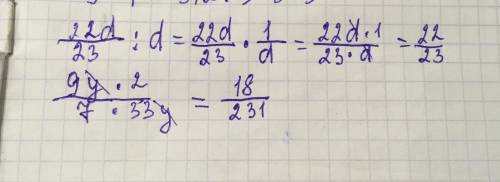 22d/23 : d = 22d/23 · 1/d = 22d · 1/23 · d = 22/23
9y · 2/7 · 33y = 18/231